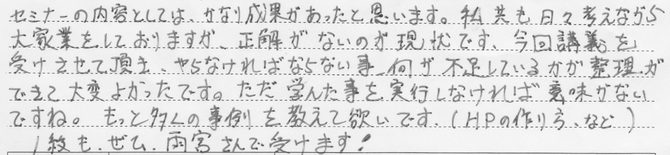 セミナーの内容としては、かなり成果があったと思います。私共も日々考えながら
大家業をしておりますが、正解がないのが現状です。今回講義を
受けさせて頂き、やらなければならない事、何が不足しているかが整理が
できて大変よかったです。ただ学んだ事を実行しなければ意味がない
ですね。もっと多くの事例を教えて欲しいです。(HPの作り方、など)
も、ぜひ、雨宮さんで受けます!